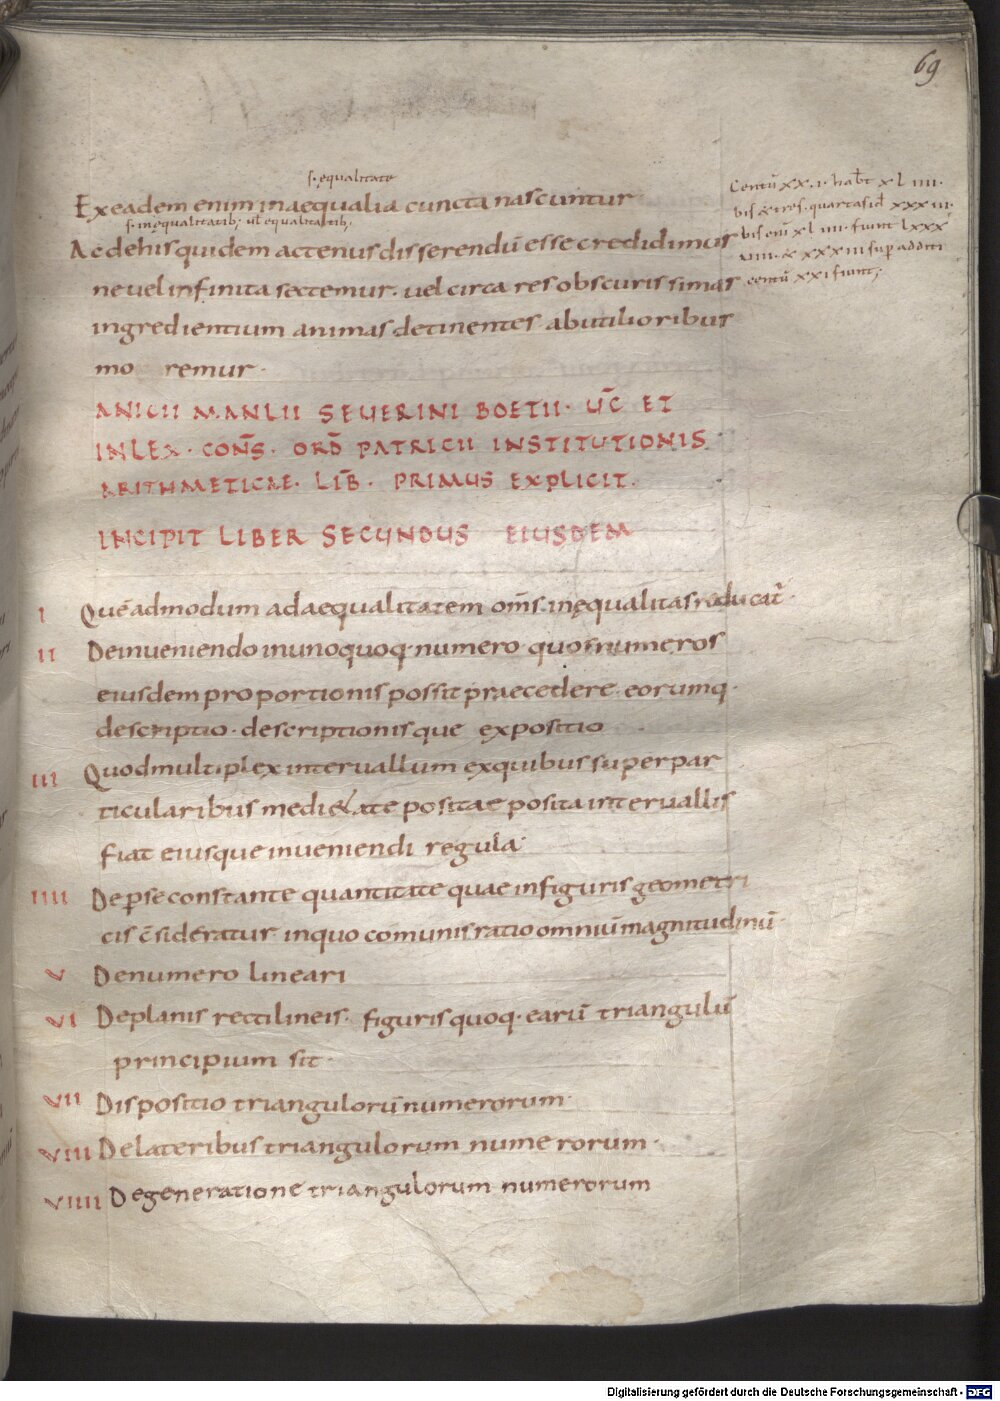 69
s. equalitate
Ex eadem enim inaequalia cuncta nascuntur.
s. inequalitatib; ul equalitatib;
Ac de his quidem actenus disserendū esse credidimus
ne uel infinita sectemur. uel circa res obscurissimas
ingredientium animas detinentes ab utilioribus
mo remur.
centū xx.i. habt xl iiii.
bis & tres. quartas id xxx iii.
bis eni xl iiii. fiunt lxxx
viii. & xxx iii sup additi
centū xxi fiunt;
ANICII MANLII SEUERINI BOETII. UC̄ ET
INLEX. CONS̄. ORD̄ PATRICII INSTITUTIONIS
ARITHMETICAE. LIB̄. PRIMUS EXPLICIT.
INCIPIT LIBER SECUNDUS EIUSDEM
I Quēadmodum ad aequalitatem om̄s inęqualitas reducat᷑.
II De inueniendo in unoquoq. numero quos numeros
eiusdem proportionis possit praecedere. eorumq.
descriptio. descriptionisque expositio
III Quod multiplex interuallum ex quibus superpar
ticularibus medietate positae posita interuallis
fiat eiusque inueniendi regula.
IIII De p̱ se constante quantitate quae in figuris geometri
cis c̄sideratur in quo comunis ratio omniū magnitudinū.
V De numero lineari
VI De planis rectilineis. figuris quoq. earū triangulū
principium sit.
VII Dispositio triangulorū numerorum.
VIII De lateribus triangulorum nume rorum.
VIIII De generatione triangulorum numerorum
Digitalisierung gefördert durch die Deutsche Forschungsgemeinschaft - DFG